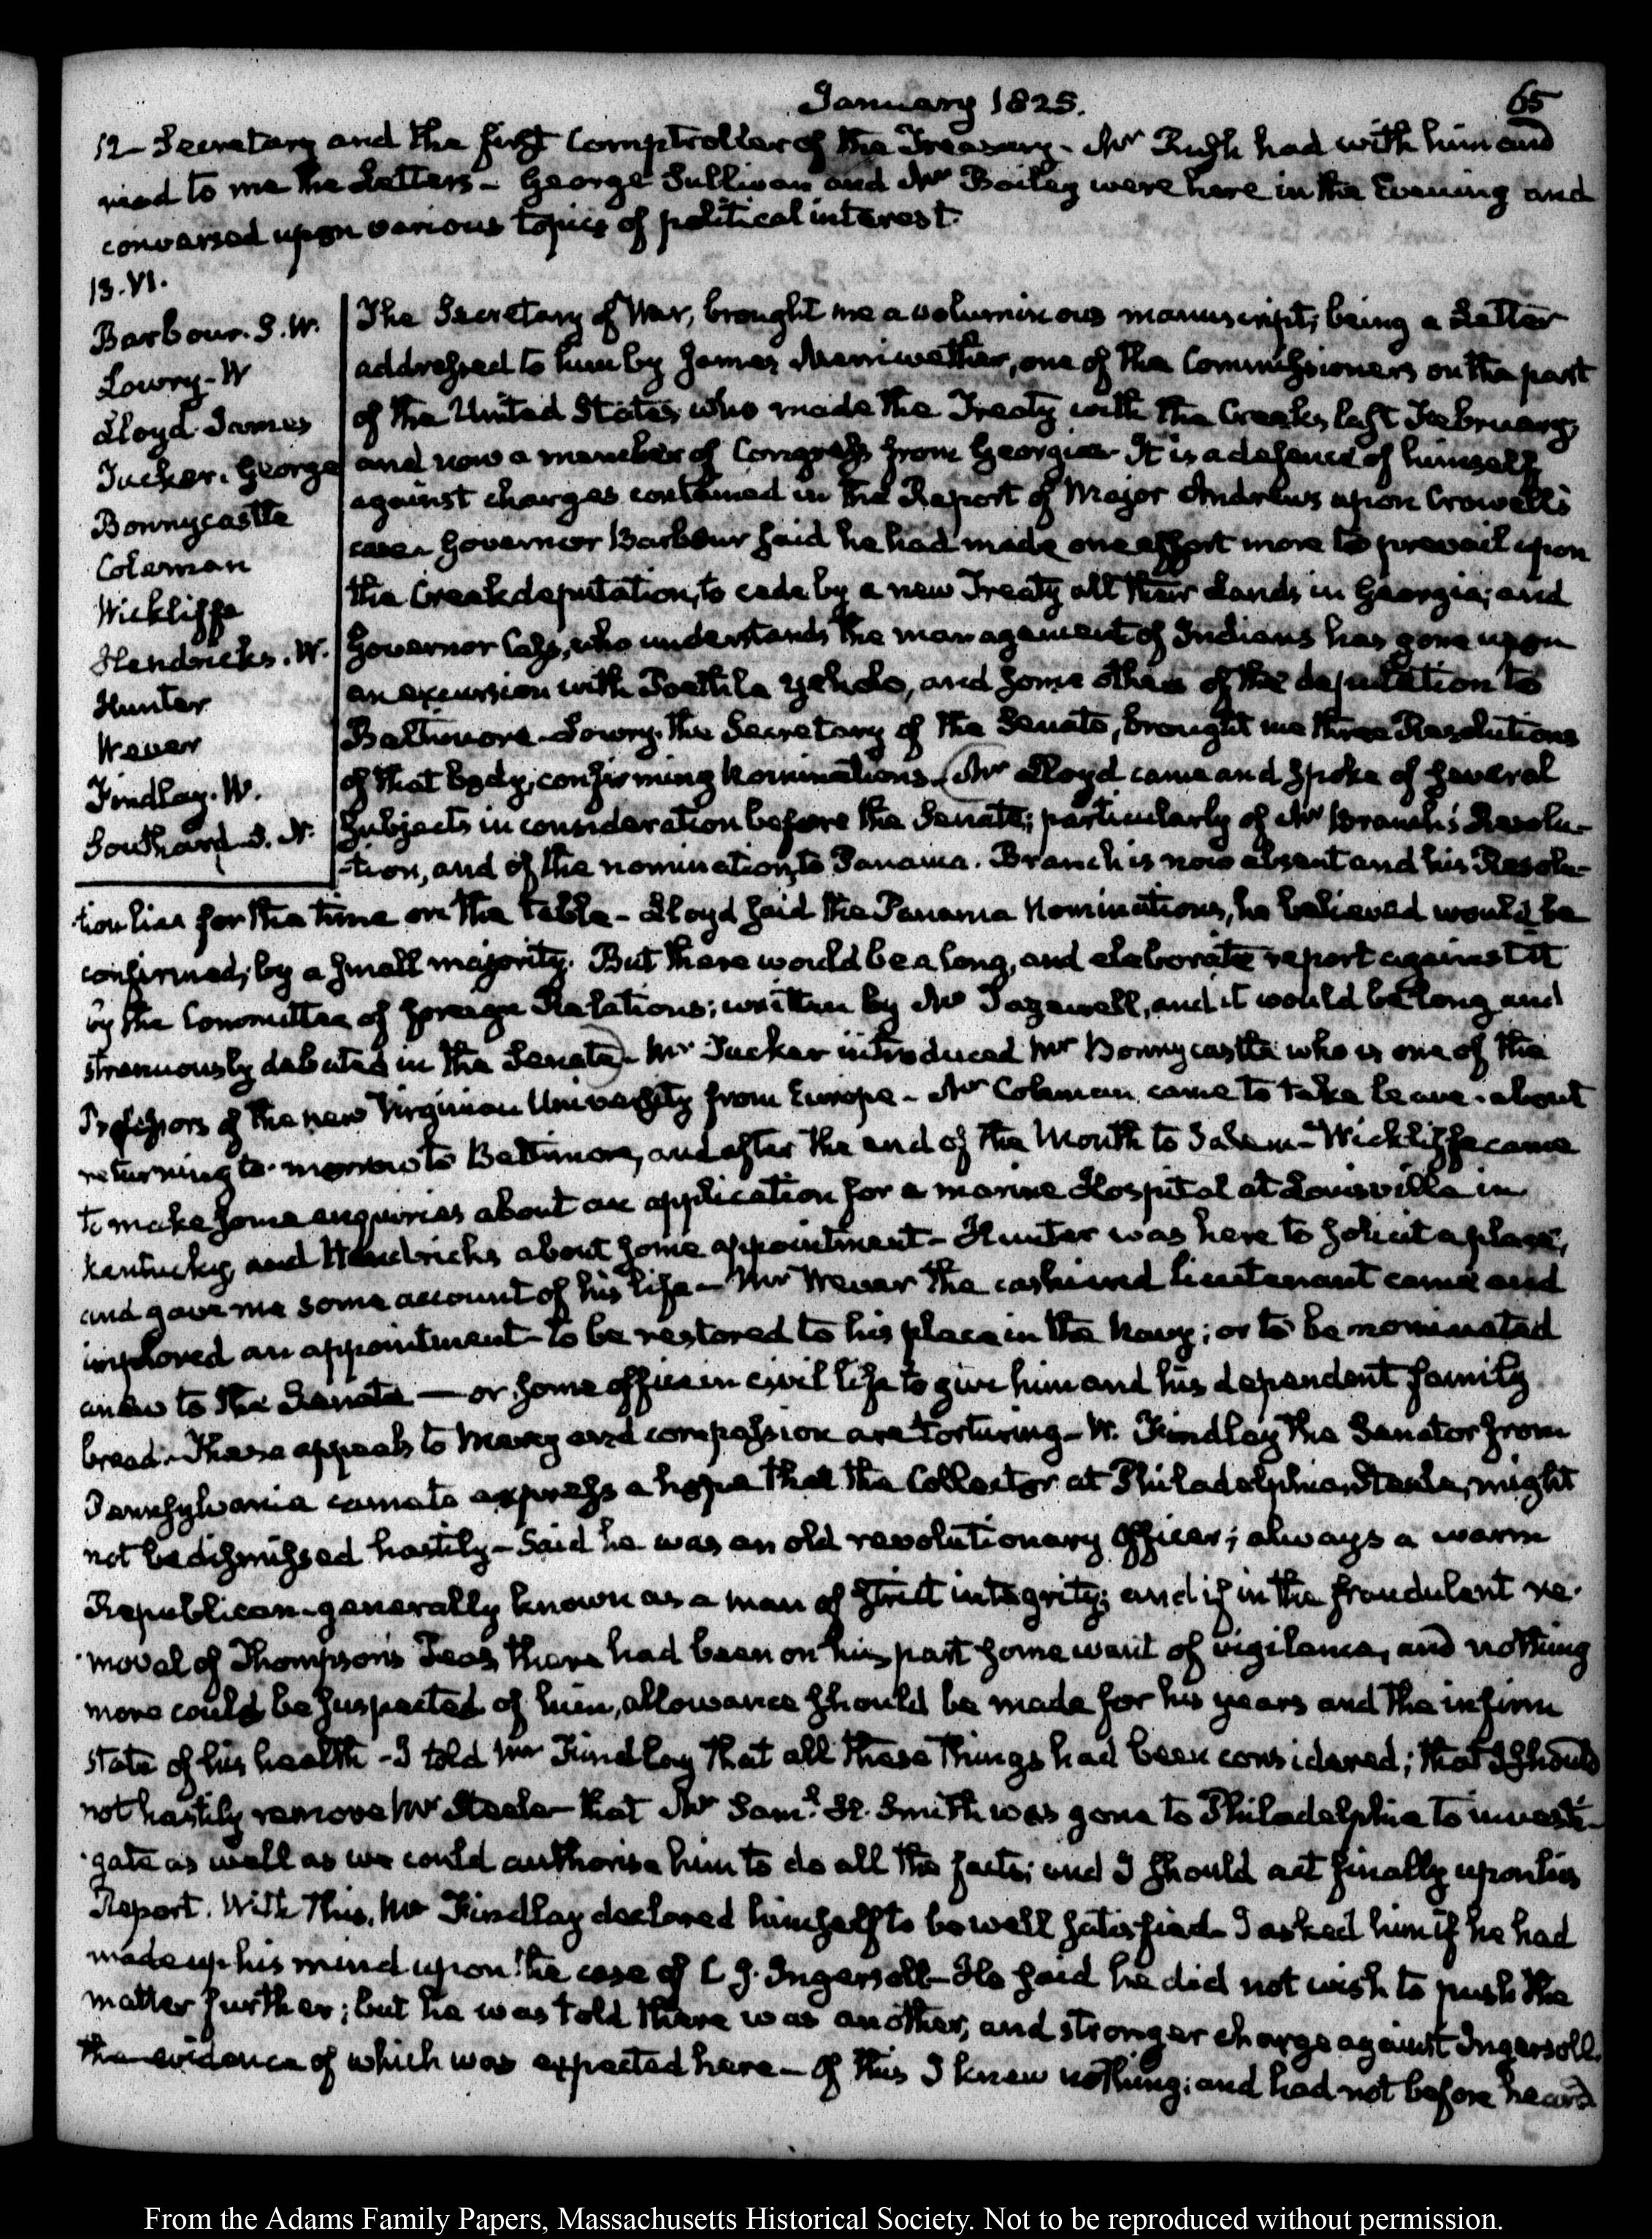 January 1825.
65
12– Secretary and the first Comptroller of the Treasury – Mr Rush had with him and
read to me the Letters – George Sullivan and Mr Bailey were here in the Evening and
conversed upon various topics of political interest.
13. VI.
Barbour. J. W.
Lowry – W
Lloyd James
Tucker. George
Bonnycastle
Coleman
Wickliffe
Hendricks. W.
Hunter
Wever
Findlay. W.
Southard. S. N.
The Secretary of War, brought me a voluminous manuscript; being a Letter
addressed to him by James Meriwether, one of the Commissioners on the part
of the United States, who made the Treaty with the Creeks, last February,
and now a member of Congress from Georgia – It is a defence of himself,
against charges contained in the Report of Major Andrews upon Crowell's
case – Governor Barbour said he had made one effort more to prevail upon
the Creek deputation, to cede by a new Treaty all their Lands in Georgia; and
Governor Cass, who understands the management of Indians has gone upon
an excursion with and some others of the deputation to
Baltimore – Lowry, the Secretary of the Senate, brought me three Resolutions
of that body, confirming nominations. (Mr Lloyd came and spoke of several
subjects in consideration before the Senate; particularly of Mr Branch's Resolu-
-tion, and of the nominations to Panama. Branch is now absent and his Resolu-
tion lies for the time on the table – Lloyd said the Panama Nominations, he believed would be
confirmed, by a small majority. But there would be a long, and elaborate report against it
by the Committee of foreign Relations; written by Mr Tazewell, and it would be long and
strenuously debated in the Senate) – Mr Tucker introduced Mr Bonnycastle who is one of the
Professors of the new Virginian University from Europe – Mr Coleman came to take leave. about
returning to-morrow to Baltimore, and after the end of the Month to Salem – Wickliffe came
to make some enquiries about an application for a marine Hospital at Louisville in
Kentucky, and Hendricks about some appointment – Hunter was here to solicit a place,
and gave me some account of his life – Mr Wever the cashiered lieutenant came and
implored an appointment – to be restored to his place in the Navy; or to be nominated
anew to the Senate — or some office in civil life to give him and his dependent family
bread – These appeals to mercy and compassion are torturing – W. Findlay the Senator from
Pennsylvania came to express a hope that the Collector at Philadelphia, Steele, might
not be dismissed hastily – Said he was an old revolutionary Officer; always a warm
Republican – generally known as a man of strict integrity; and if in the fraudulent re-
-moval of Thompson's Teas there had been on his part some want of vigilance, and nothing
more could be suspected of him, allowance should be made for his years and the infirm
state of his health – I told Mr Findlay that all these things had been considered; that I should
not hastily remove Mr Steele – that Mr Saml. H. Smith was gone to Philadelphia to investi-
-gate as well as we could authorise him to do all the facts; and I should act finally upon his
Report. With this, Mr Findlay declared himself to be well satisfied – I asked him if he had
made up his mind upon the case of C. J. Ingersoll – He said he did not wish to push the
matter further; but he was told there was another, and stronger charge against Ingersoll,
the evidence of which was expected here – Of this I knew nothing; and had not before heard
From the Adams Family Papers, Massachusetts Historical Society. Not to be reproduced without permission.